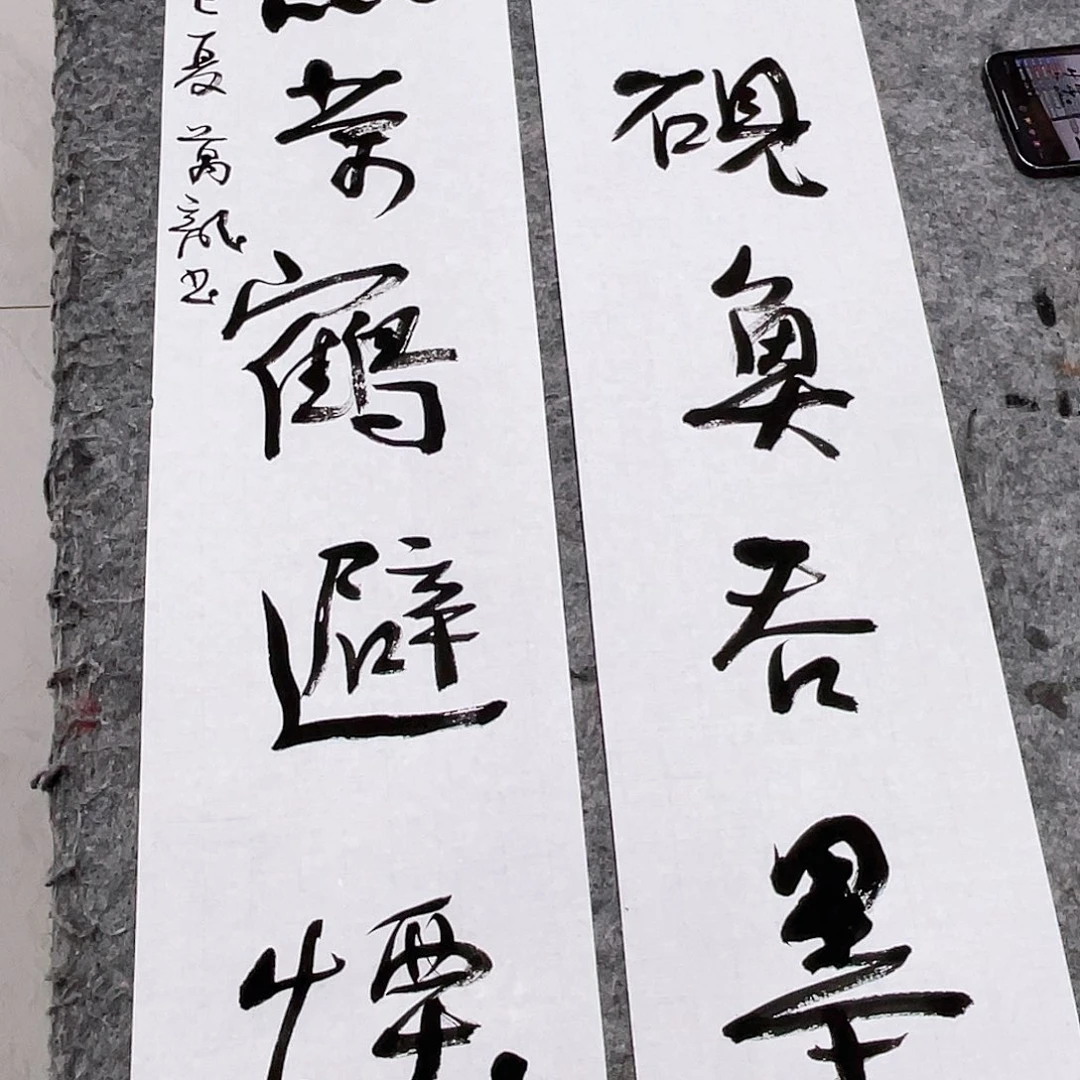 硯魚吞墨
茶鶴避煙
夏萬龍书